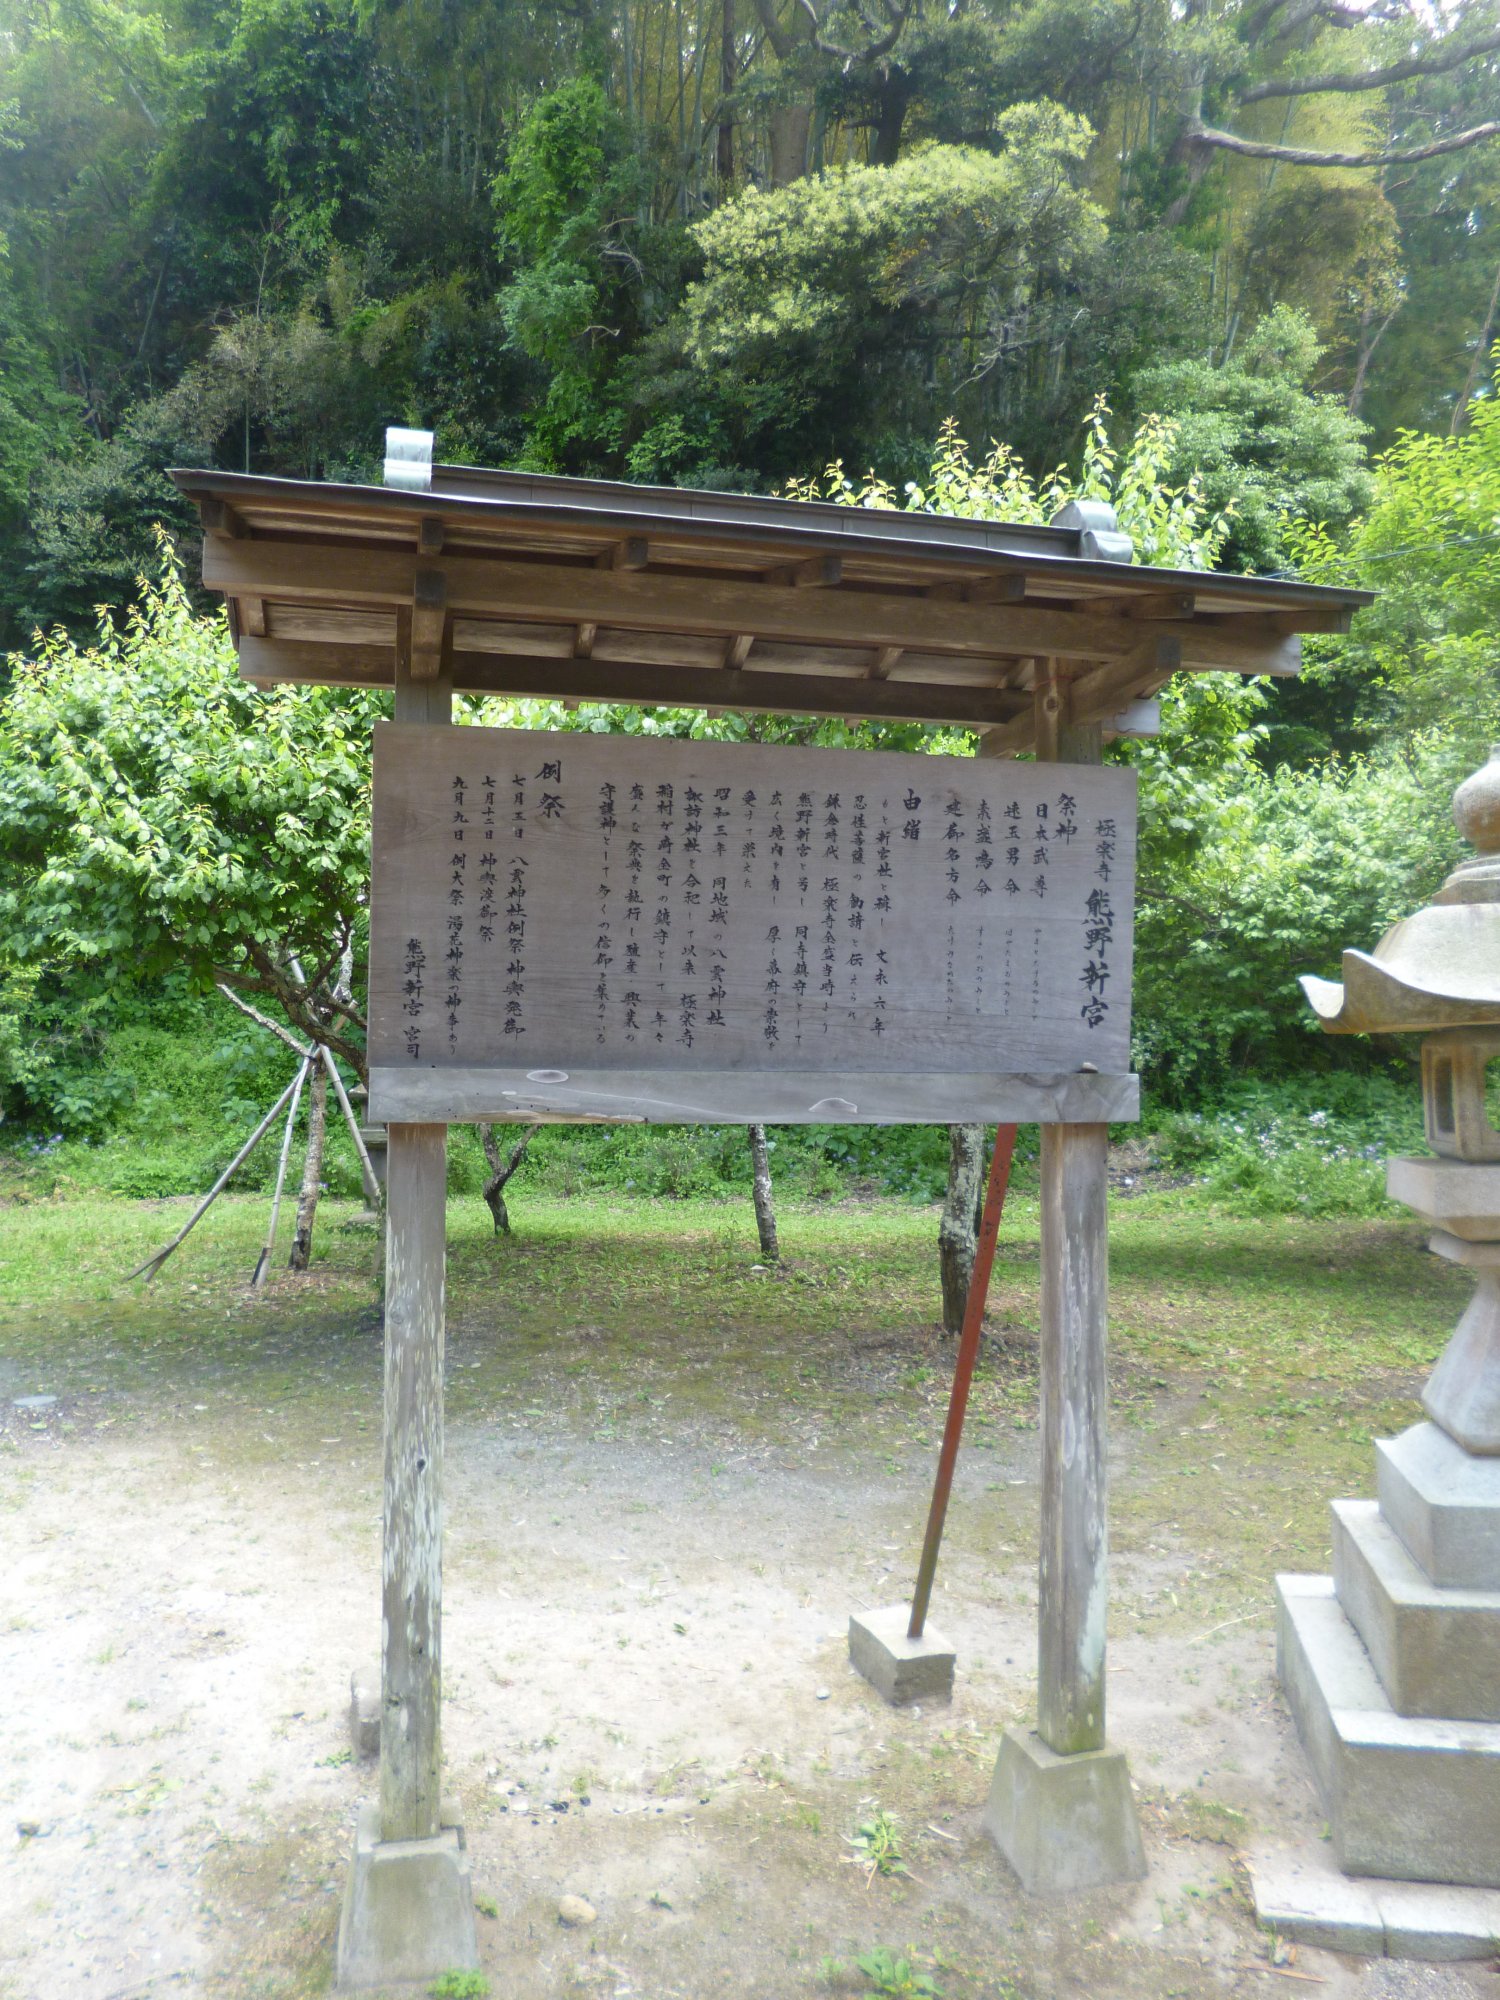 極楽寺 熊野新宮
祭神
日本武尊 やまとたけるのみこと
速玉男命 はやたまおのみこと
素盞鳴命 すさのおのみこと
建御名方命 たけみなかたのみこと
由緒
もと新宮社と稱し 文永六年
忍性菩薩の勧請と伝えられ
鎌倉時代 極楽寺全盛当時より
熊野新宮と号し 同寺鎮守として
広く境内を有し 厚く幕府の崇敬を
受けて栄えた
昭和三年 同地域の八雲神社
諏訪神社を合祀して以来 極楽寺
稲村ガ崎全町の鎮守として 年々
盛んな祭典を執行し殖産 興業の
守護神として多くの信仰を集めている
例祭
七月五日 八雲神社例祭 神輿発御
七月十二日 神輿渡御祭
九月九日 例大祭 湯花神楽の神事あり
熊野新宮 宮司